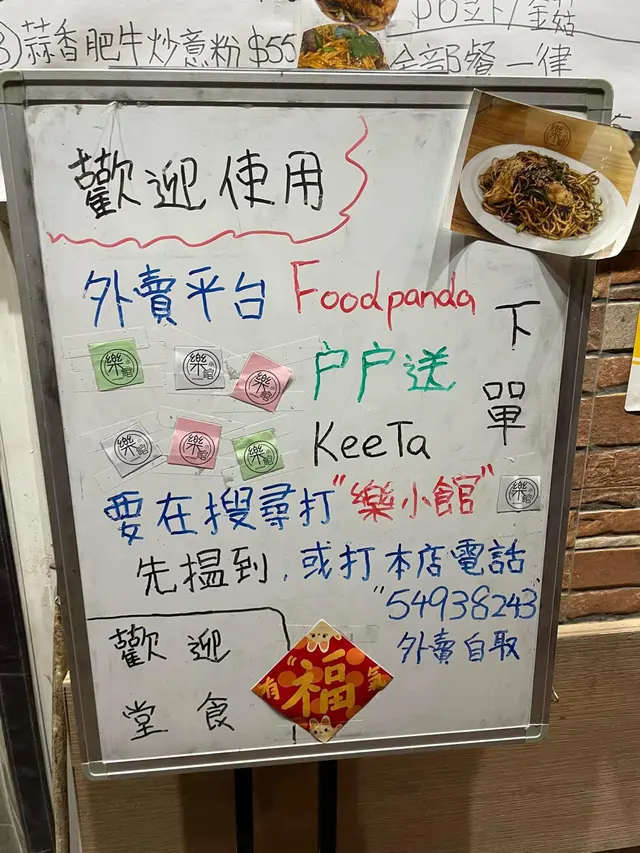 蒜香肥牛炒意粉 $55
全部餐一律
歡迎使用
外賣平台 Foodpanda
戶戶送
KeeTa
下單
樂小館
要在搜尋打"樂小館"
先搵到,或打本店電話
"54938243"
外賣自取
歡迎
堂食
有"福"氣